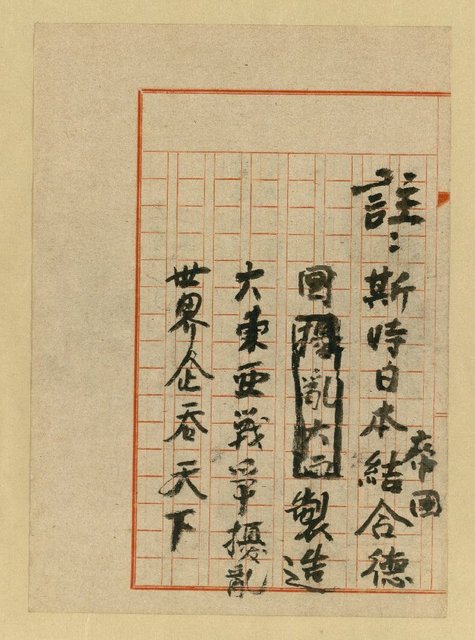 註：斯時日本帝国結合德
国擾亂大西製造
大東亜戦争擾亂
世界企吞天下